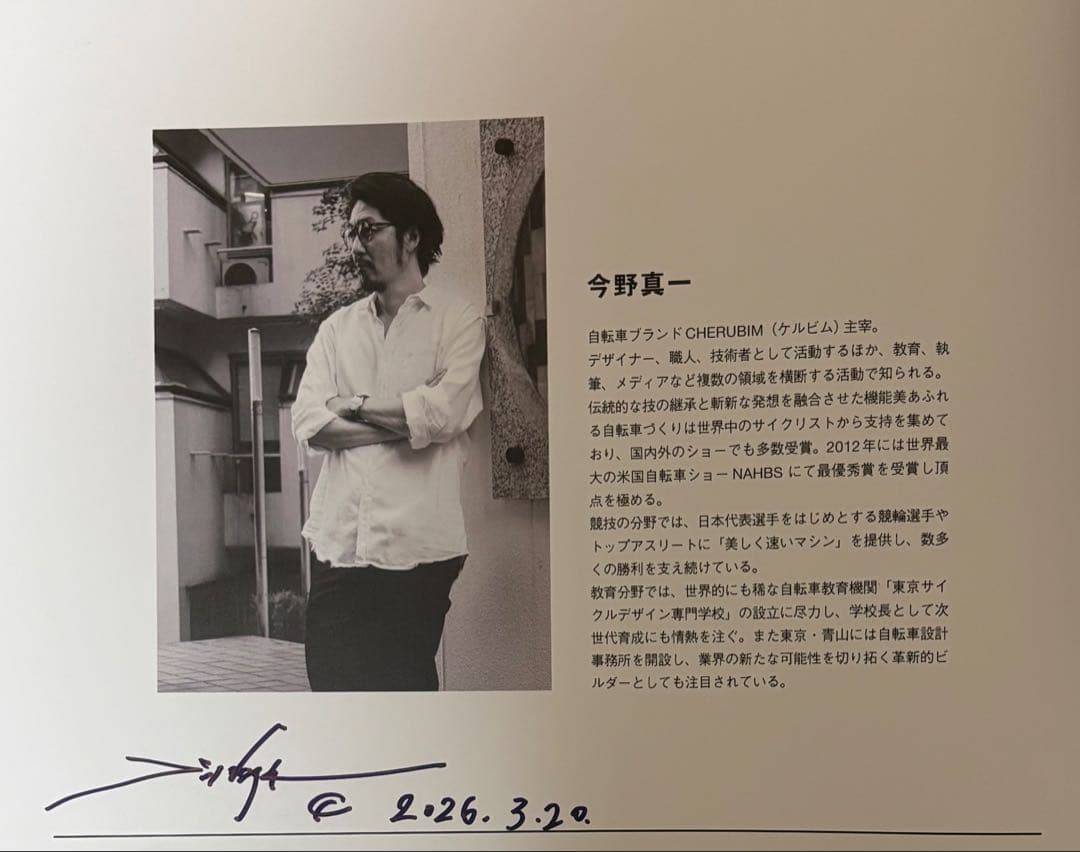 今野真一
自転車ブランドCHERUBIM（ケルビム）主宰。
デザイナー、職人、技術者として活動するほか、教育、執
筆、メディアなど複数の領域を横断する活動で知られる。
伝統的な技の継承と斬新な発想を融合させた機能美あふれ
る自転車づくりは世界中のサイクリストから支持を集めて
おり、国内外のショーでも多数受賞。2012年には世界最
大の米国自転車ショーNAHBSにて最優秀賞を受賞し頂
点を極める。
競技の分野では、日本代表選手をはじめとする競輪選手や
トップアスリートに「美しく速いマシン」を提供し、数多
くの勝利を支え続けている。
教育分野では、世界的にも稀な自転車教育機関「東京サイ
クルデザイン専門学校」の設立に尽力し、学校長として次
世代育成にも情熱を注ぐ。また東京・青山には自転車設計
事務所を開設し、業界の新たな可能性を切り拓く革新的ビ
ルダーとしても注目されている。
2026.3.20.